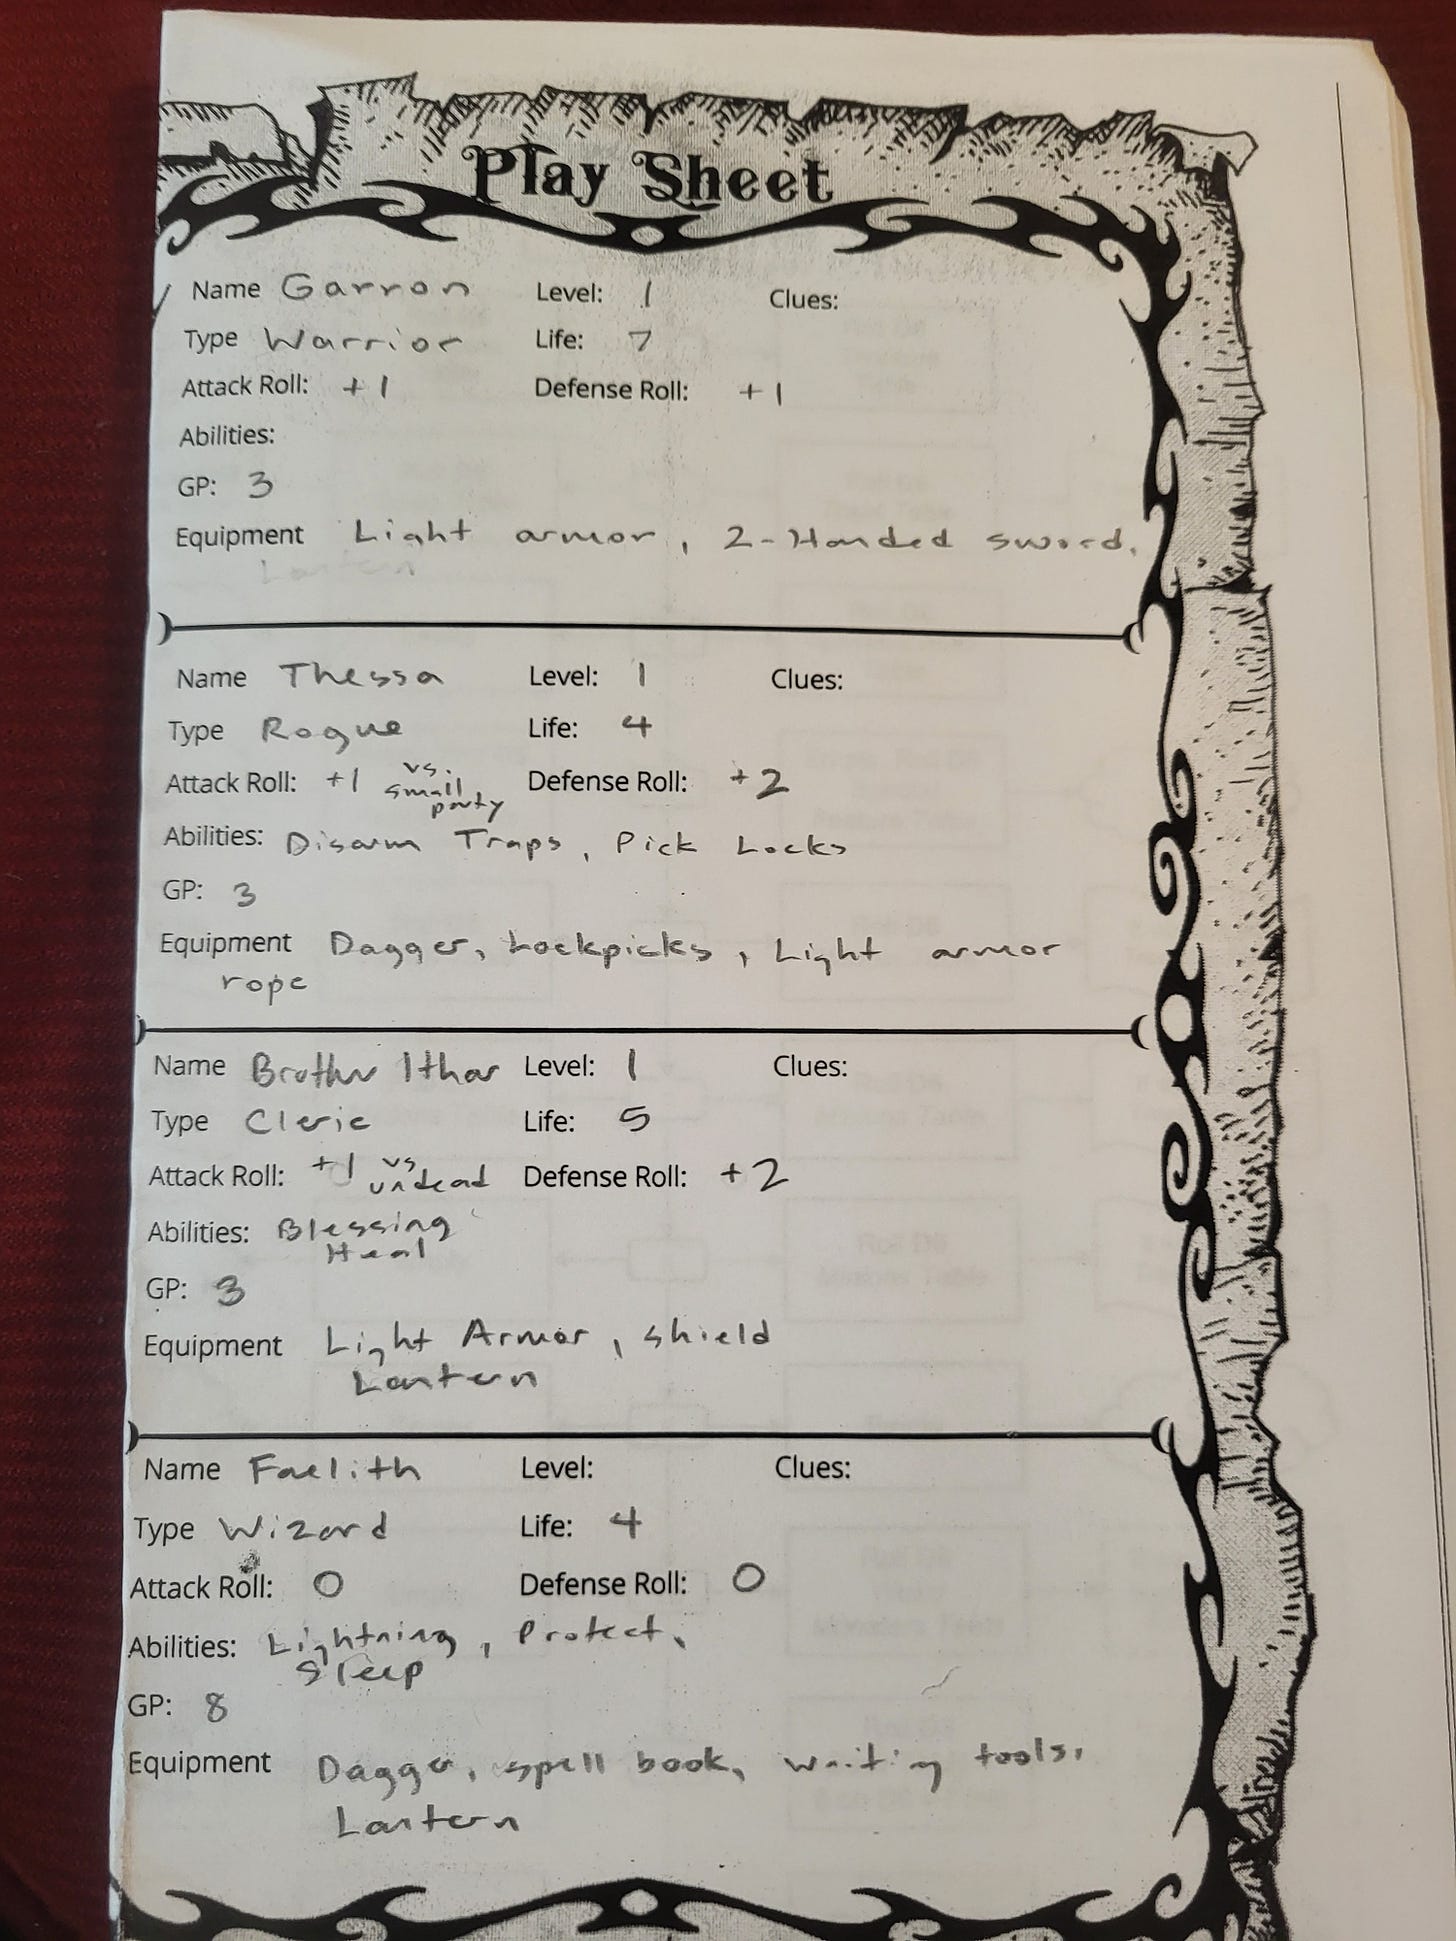 Play Sheet
Name Garron Level: 1 Clues:
Type Warrior Life: 7
Attack Roll: +1 Defense Roll: +1
Abilities:
GP: 3
Equipment Light armor, 2-Handed sword,
Lantern
Name Thessa Level: 1 Clues:
Type Rogue Life: 4
Attack Roll: +1 vs. small party Defense Roll: +2
Abilities: Disarm Traps, Pick Locks
GP: 3
Equipment Dagger, Lockpicks, Light armor
rope
Name Brother Ithar Level: 1 Clues:
Type Cleric Life: 5
Attack Roll: +1 vs undead Defense Roll: +2
Abilities: Blessing
Heal
GP: 3
Equipment Light Armor, shield
Lantern
Name Faelith Level: Clues:
Type Wizard Life: 4
Attack Roll: 0 Defense Roll: 0
Abilities: Lightning, Protect,
Sleep
GP: 8
Equipment Dagger, spell book, writing tools,
Lantern